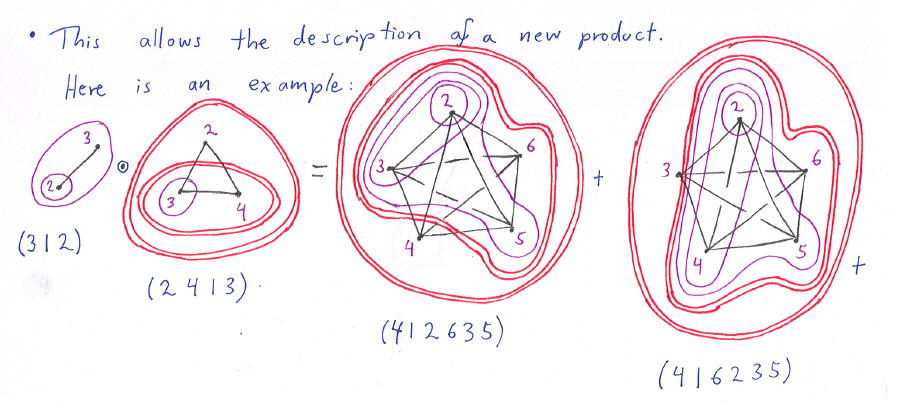 • This allows the description of a new product.
Here is an example:
2 3
∘
2 3 4
=
2 3 4 5 6
+
2 3 4 5 6
+
(312)
(2413).
(412635)
(416235)